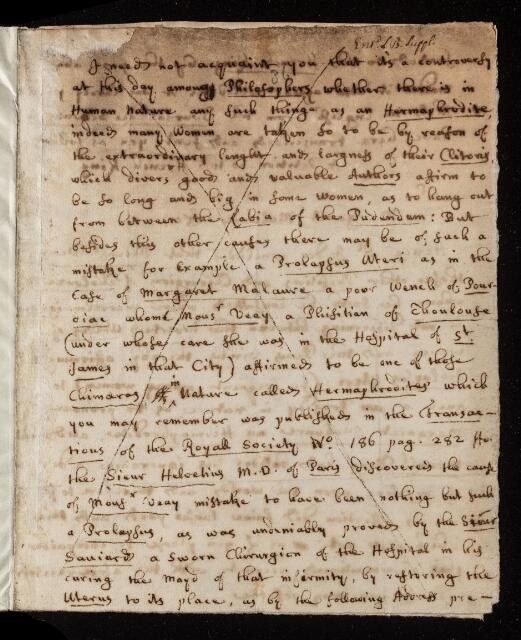 Ent.d L.B. Suppl.
I need not acquaint you that its a controversy
at this day among Philosophers whether there is in
Human Nature any such thinge as an Hermaphrodite,
indeed many Women are taken so to be by reason of
the extraordinary lenght and largness of their Clitoris,
which divers good and valuable Authors affirm to
be so long and big in some Women, as to hang out
from between the Labia of the Pudendum: But
besides this other causes there may be of such a
mistake for Example a Prolapsus Uteri as in the
Case of Margaret Malaure a poor Wench of Pour-
diac whome Mousr Veay a Phisitian of Thoulouse
(under whose care she was in the Hospital of St
James in that City) affirmed to be one of those
Chimaras in Nature called Hermaphrodites which
you may remember was published in the Transac-
tions of the Royall Society No 186 pag. 282 
the Sieur Helvetius M.D. of Paris discovereis the cause
of Mousr Veay mistake to have been nothing but such
a Prolapsus, as was undeniably proved by the Sieur
Saviard a sworn Chirurgion of the Hospital in his
curing the Mayd of that infirmity, by restoring the
Uterus to its place, as by the following Adress pre-